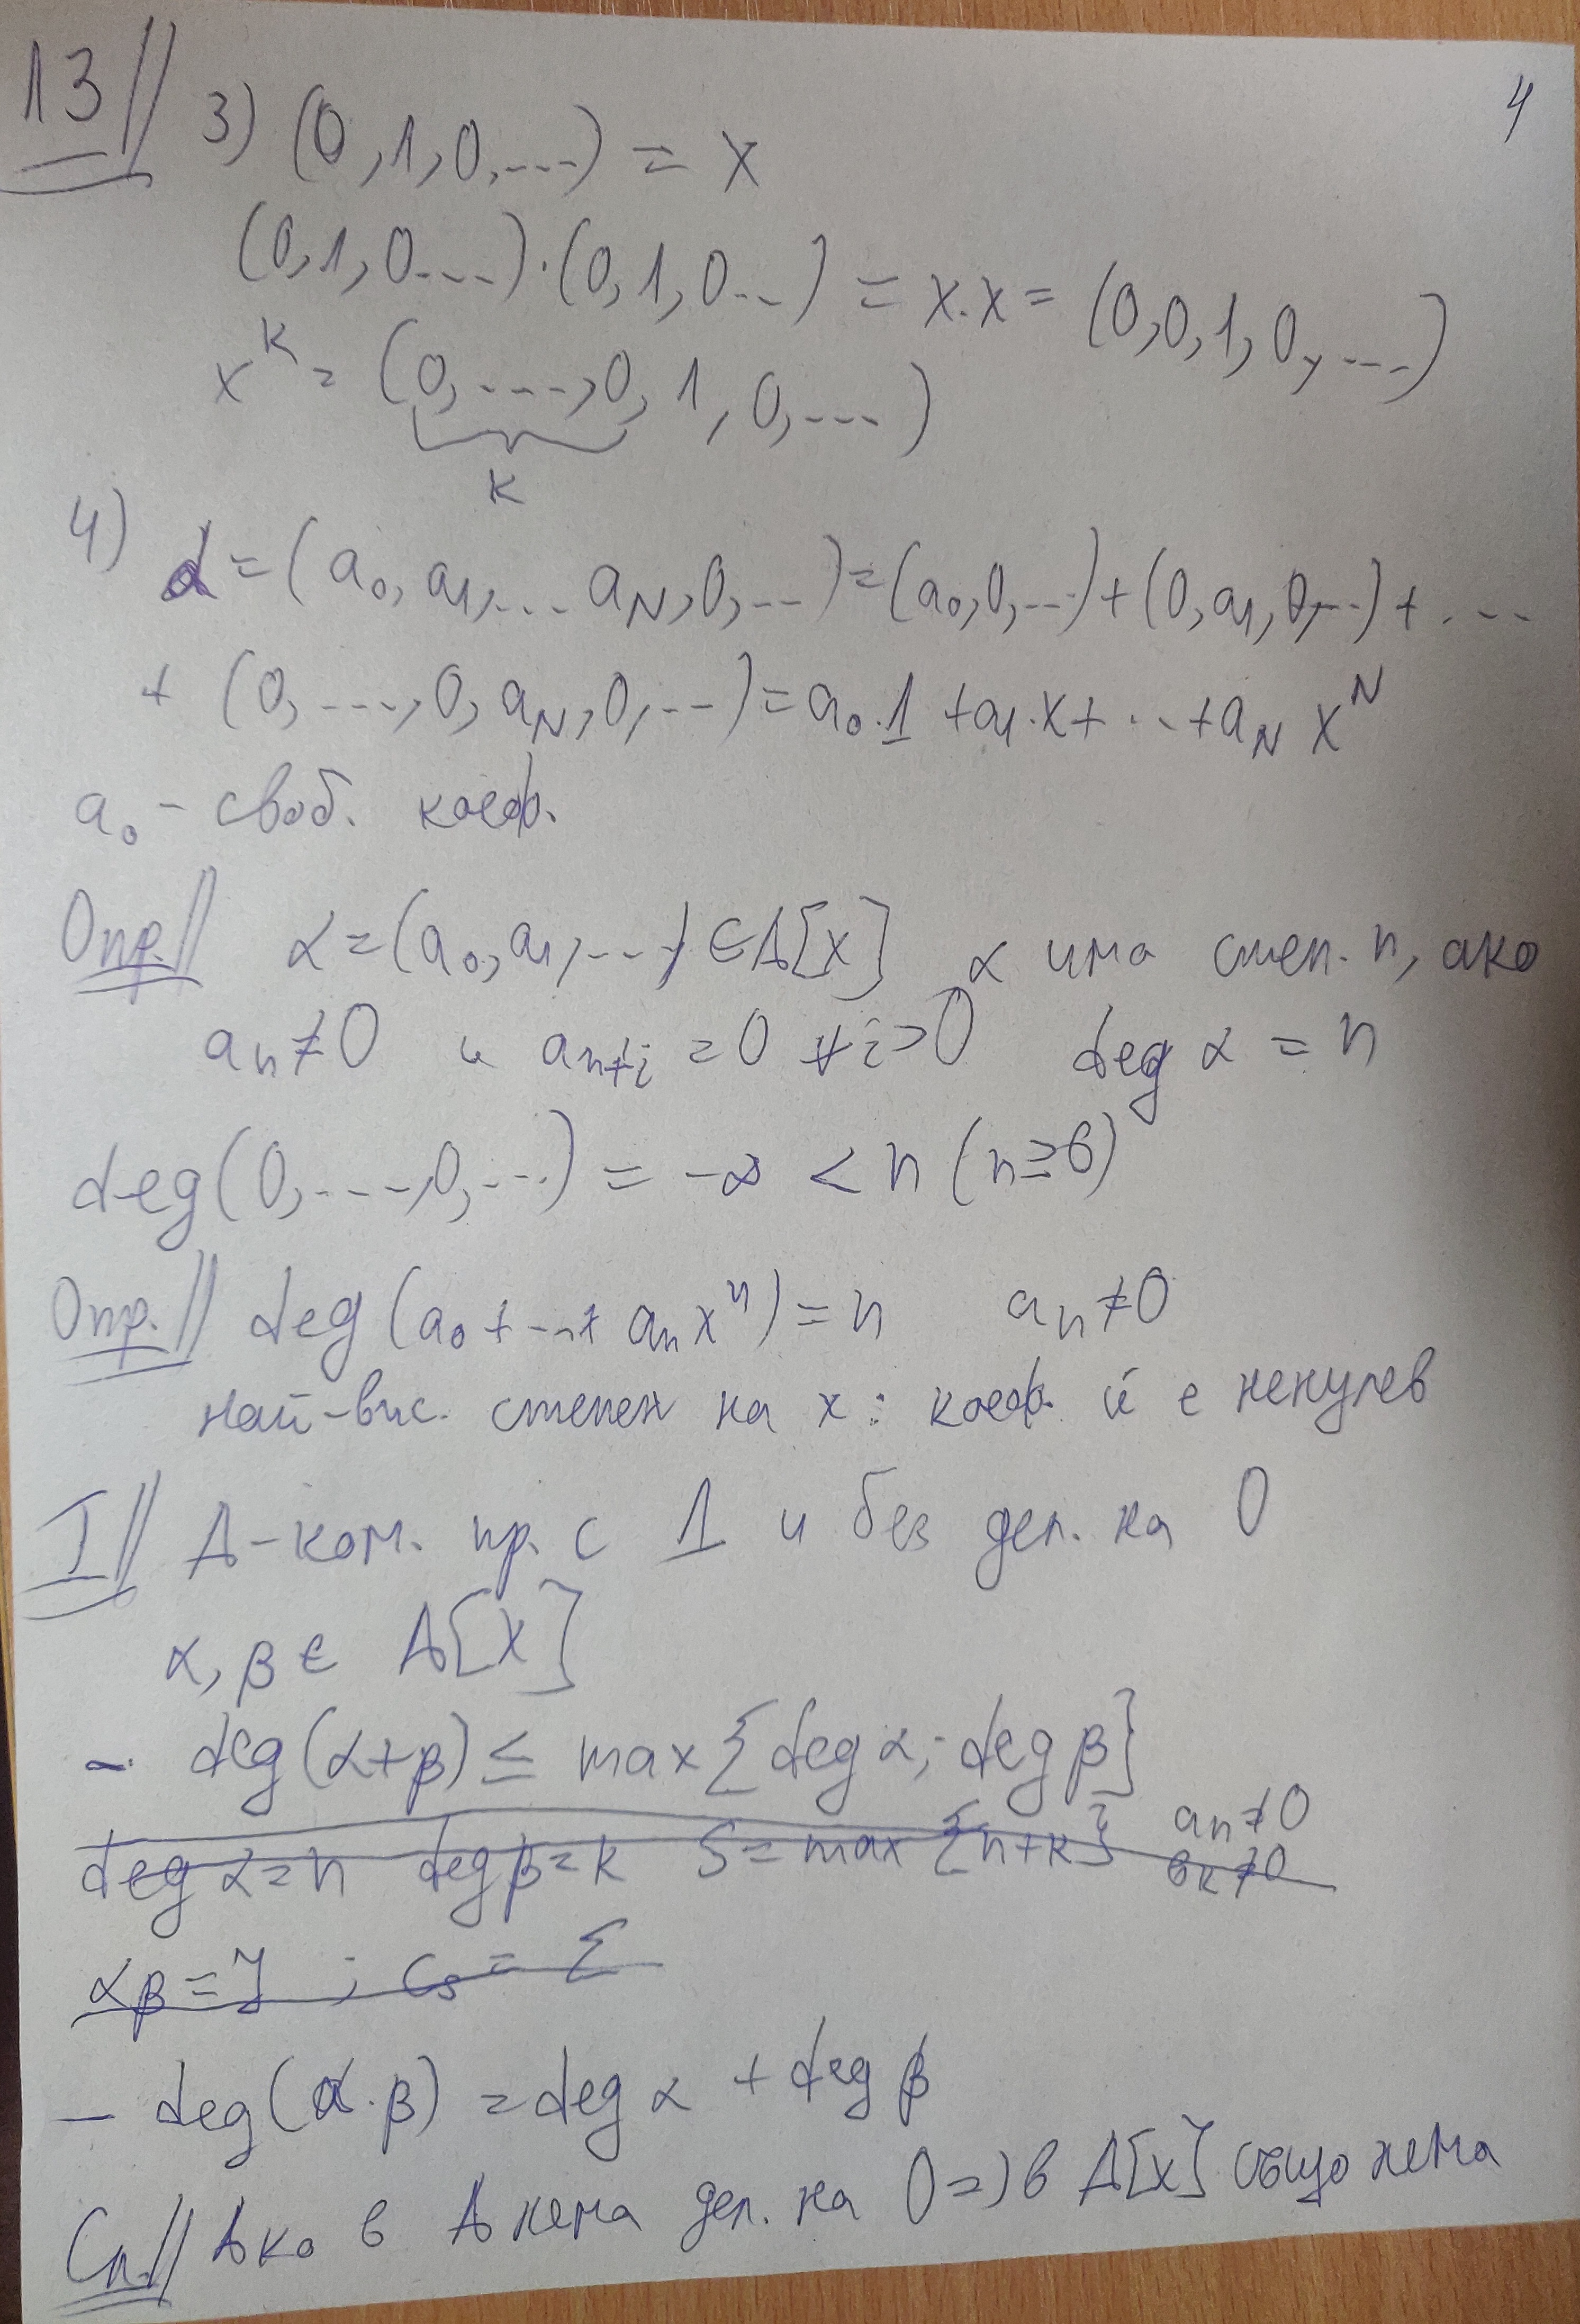 13// 3) (0,1,0,...) = x
4
(0,1,0...)·(0,1,0...) = x.x = (0,0,1,0,...)
x^k = (0,...,0,1,0,...)
k
4) α = (a₀, a₁,... a_N,0,...) = (a₀,0,...) + (0,a₁,0,...) + ...
+ (0,...,0, a_N,0,...) = a₀.1 + a₁.x + ... + a_N x^N
a₀ - своб. коеф.
Опр.// α = (a₀, a₁,...) ∈ A[x] α има степ. n, ако
aₙ ≠ 0 и aₙ₊ᵢ = 0 ∀i>0 deg α = n
deg(0,...,0,...) = -∞ < n (n≥0)
Опр.// deg(a₀ + ... + aₙxⁿ) = n aₙ ≠ 0
най-вис. степен на x: коеф. ѝ е ненулев
I// A-ком. пр. с 1 и без дел. на 0
α, β ∈ A[x]
- deg(α+β) ≤ max{deg α; deg β}
deg α = n deg β = k S = max{n+k} aₙ ≠ 0
вк ≠ 0
αβ = γ ; cₛ = Σ
- deg(α.β) = deg α + deg β
Сл.// Ако в A нема дел. на 0 => в A[x] също нема